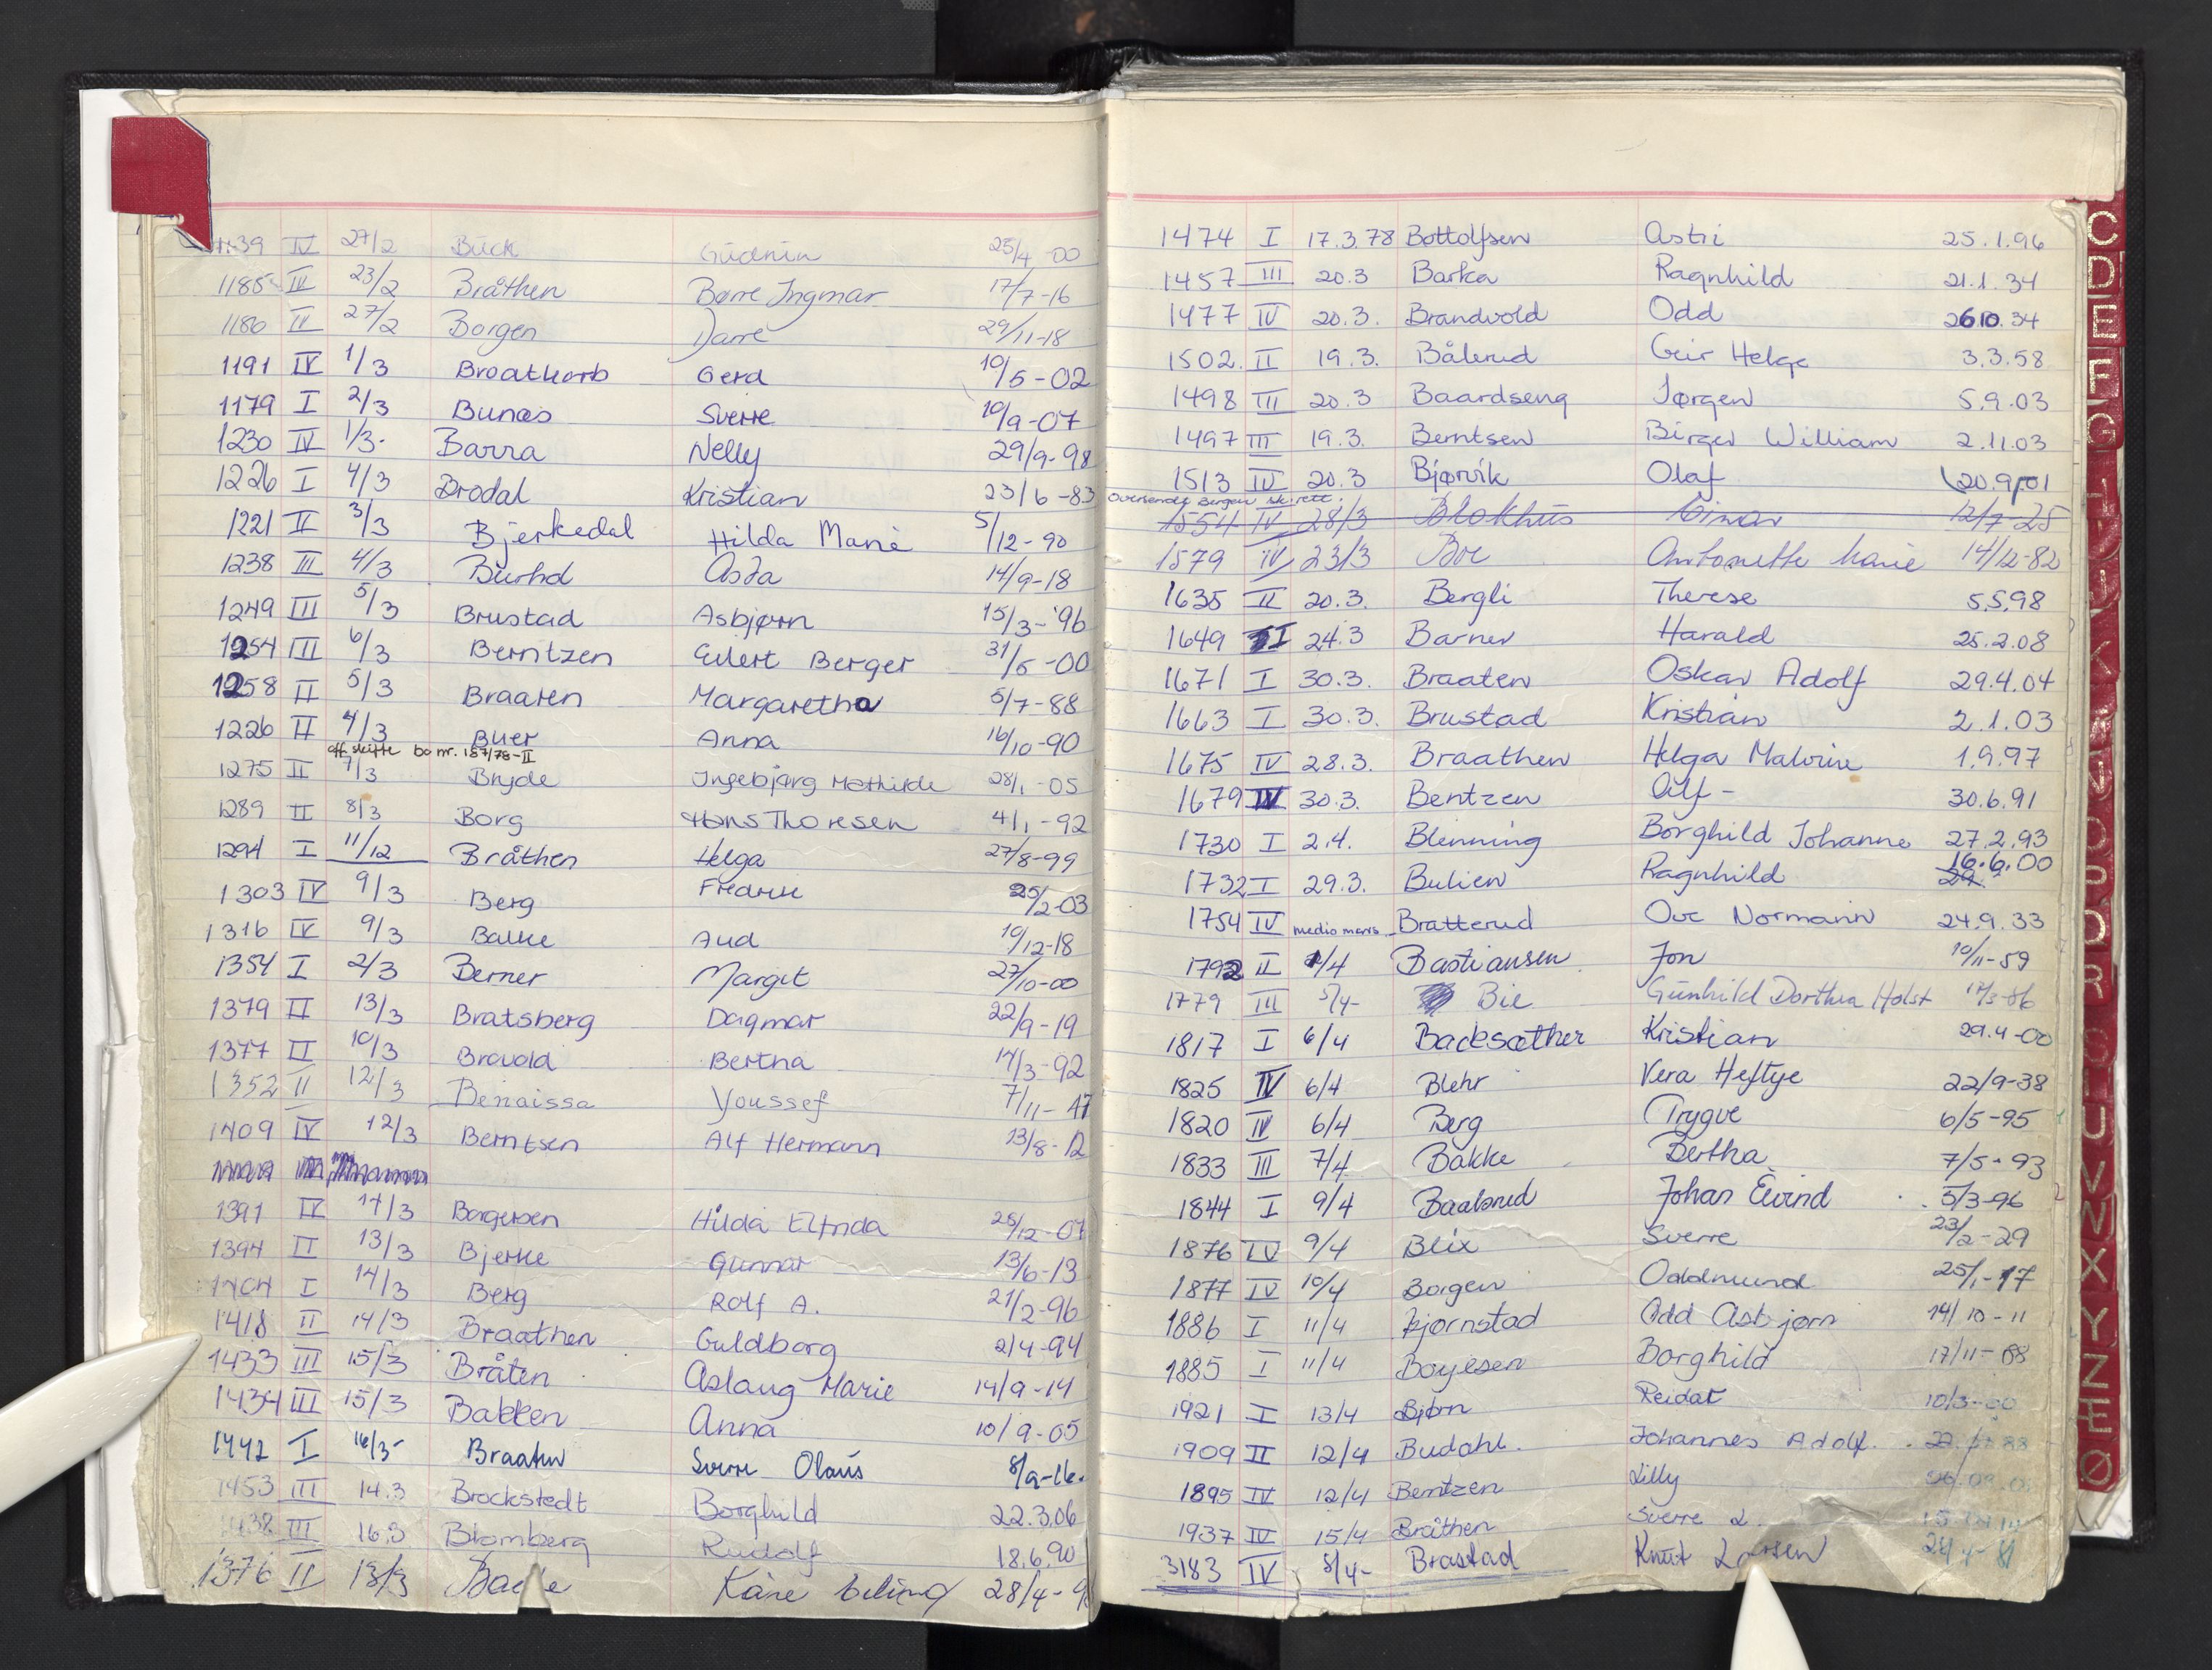 1139 IV 27/2 Bück Gudrun 25/4 -00
1185 IV 23/2 Bråthen Børre Ingmar 17/7-16
1186 IV 27/2 Borgen 29/11-18
1191 IV 1/3 Broatkorb Gerd 10/5-02
1179 I 2/3 Bunæs Sverre 10/9-07
1230 IV 1/3- Barra Nelly 29/9-98
1226 I 4/3 Brodal Kristian 23/6-83
1221 II 3/3 Bjerkedal Hilda Marie 5/12-90
1238 III 4/3 Burhol Asta 14/9-18
1249 III 5/3 Brustad Asbjørn 15/3-'96
1254 III 6/3 Berntzen Eilert Berger 31/5-00
1258 II 5/3 Braaten Margaretha 5/7-88
1226 II 4/3 Buer Anna 16/10-90
off. skifte bo nr. 187/78-II
1275 II 7/3 Bryde Ingebjørg Mathilde 28/1-05
1289 II 8/3 Borg Hans Thoresen 4/1-92
1294 I 11/12 Bråthen Helga 27/8-99
1303 IV 9/3 Berg Fredrik 25/2-03
1316 IV 9/3 Balke Aud 10/12-18
1354 I 2/3 Berner Margit 27/10-00
1379 II 13/3 Bratsberg Dagmar 22/9-19
1377 II 10/3 Bravold Bertha 14/3-92
1352 II 12/3 Benaissa Youssef 7/11-47
1409 IV 12/3 Berntsen Alf Hermann 13/8-12
1391 IV 14/3 Borgersen Hilda Elfrida 28/12-07
1394 II 13/3 Bjerke Gunnar 13/6-13
1404 I 14/3 Berg Rolf A. 21/2-96
1418 II 14/3 Braathen Guldborg 2/4-94
1433 III 15/3 Bråten Aslaug Marie 14/9-14
1434 III 15/3 Bakken Anna 10/9-05
1442 I 16/3- Braaten Sverre Olaus 8/9-16.
1453 III 14.3 Brockstedt Borghild 22.3.06
1438 III 16.3 Blomberg Rudolf 18.6.90
1376 II 13/3 Kåre 28/4-
1474 I 17.3.78 Bottolfsen Astri 25.1.96
1457 III 20.3 Barka Ragnhild 21.1.34
1477 IV 20.3. Brandvold Odd 26.10.34
1502. II 19.3. Bålerud Geir Helge 3.3.58
1498 III 20.3 Baardseng Jørgen 5.9.03
1497 III 19.3. Berntsen Birger William 2.11.03
1513 IV 20.3 Bjørvik Olaf 20.9.01
Oversendt Bergen sk.rett.
1554 IV 28/3 Blokhus Einar 12/7 25
1579 IV 23/3 Boe Antonette Marie 14/12-82
1635 II 20.3. Bergli Therese 5.5.98
1649 I 24.3 Barner Harald 25.2.08
1671 I 30.3. Braaten Oskar Adolf 29.4.04
1663 I 30.3. Brustad Kristian 2.1.03
1675 IV 28.3. Braathen Helga Malvine 1.9.97
1679 IV 30.3. Bentzen Alf - 30.6.91
1730 I 2.4. Blenning Borghild Johanne 27.2.93
1732 I 29.3. Bulien Ragnhild 29. 16.6.00
1754 IV medio mars Bratterud Ove Normann 24.9.33
1792 II 1/4 Bastiansen Jon 10/11-59
1779 III 5/4- Bie Gunhild Dorthea Holst 17/3-86
1817 I 6/4 Backsæther Kristian 29.4-00
1825 IV 6/4 Blehr Vera Heftye 22/9-38
1820 IV 6/4 Berg Trygve 6/5-95
1833 III 7/4 Bakke Bertha 7/5-93
1844 I 9/4 Baalsrud Johan Eivind 5/3-96
1876 IV 9/4 Blix Sverre 23/2-29
1877 IV 10/4 Borgen Oddmund 25/1-17
1886 I 11/4 Bjørnstad Odd Asbjørn 14/10-11
1885 I 11/4 Boyesen Borghild 17/11-88
1921 I 13/4 Bjørn Reidar 10/3-00
1909 II 12/4 Budahl. Johannes Adolf.
1895 IV 12/4 Bentzen Lilly
1937 IV 15/4 Bråthen Sverre
3183 IV 8/4- Brastad Knut Larsen
C
D
E
F
G
H
I
J
K
N
O
P
R
S
T
U
V
W
X
Y
Z
Æ
Ø